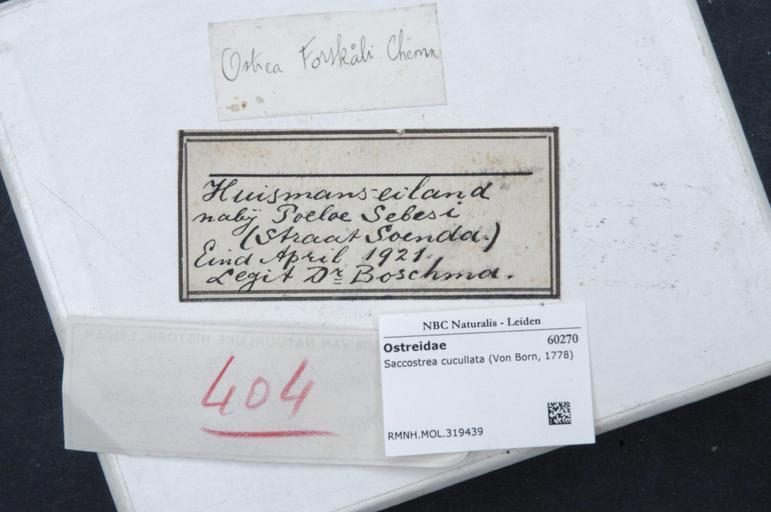 Ostrea Forskåli Chemn.
Huismans-eiland
nabij Poeloe Sebesi
(Straat Soenda.)
Eind April 1921.
Legit Dr Boschma.
404
NBC Naturalis - Leiden
Ostreidae 60270
Saccostrea cucullata (Von Born, 1778)
RMNH.MOL.319439